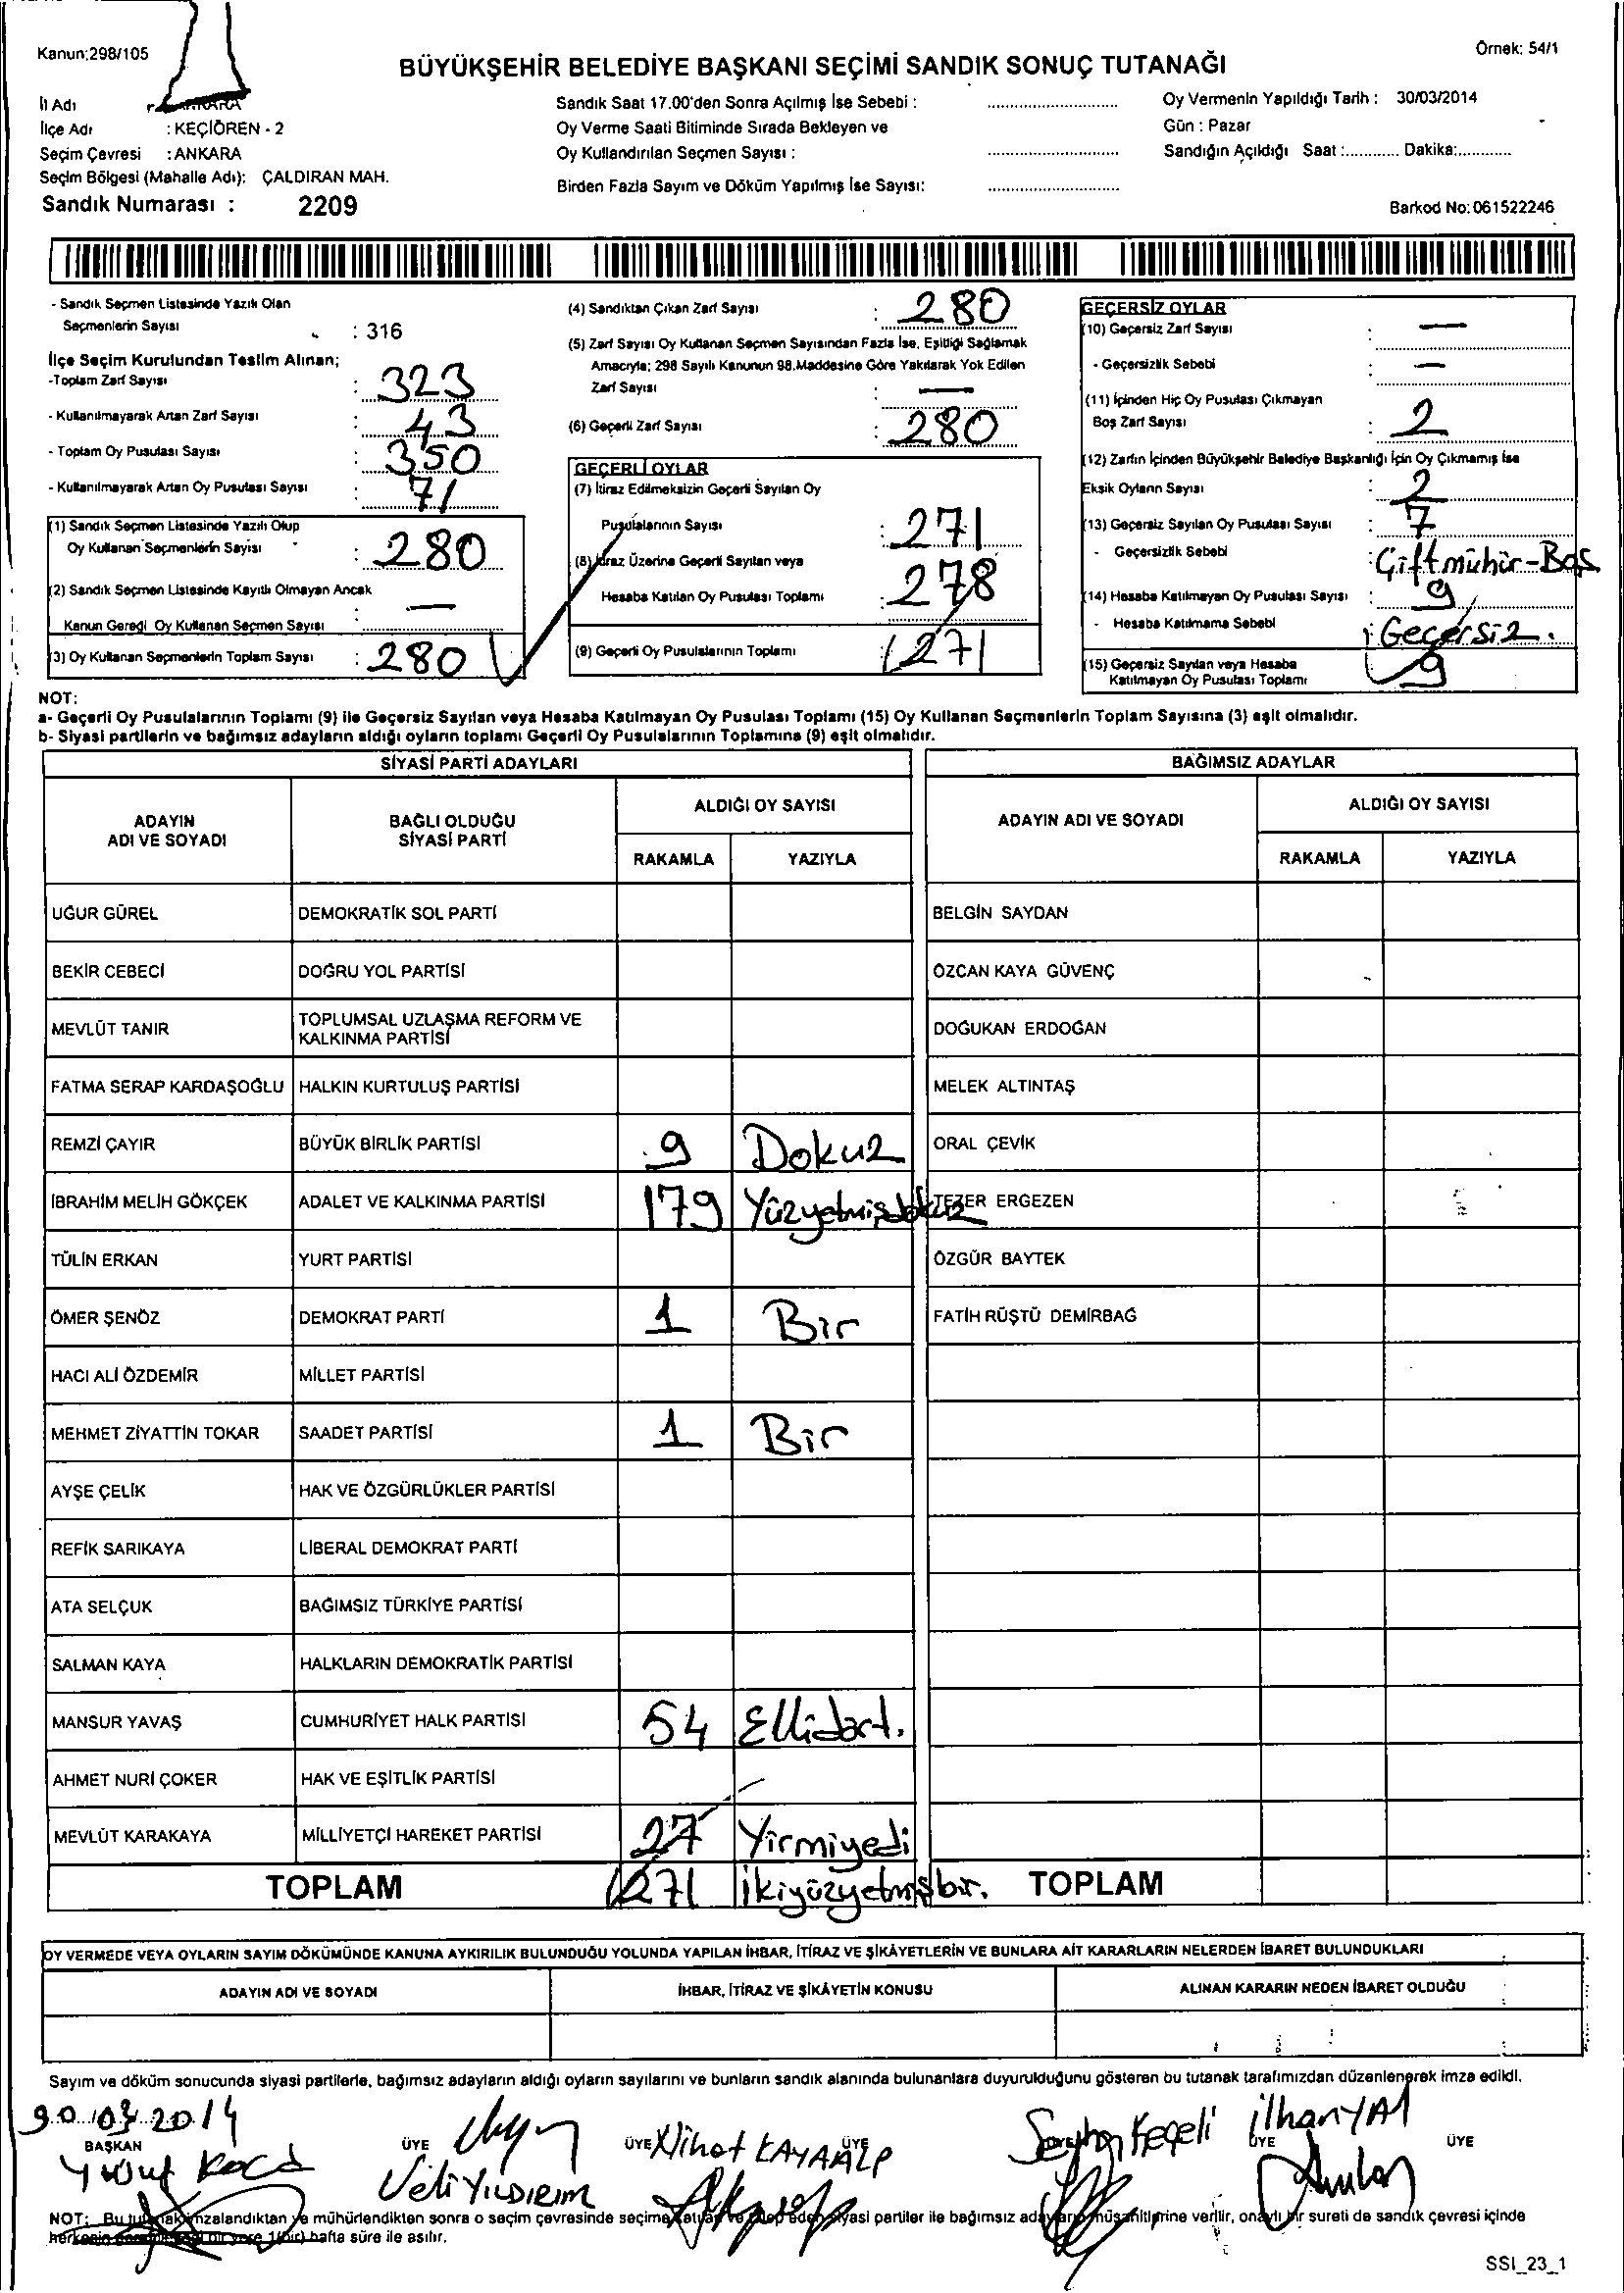 Kanun:298/105
Örnek: 54/1
BÜYÜKŞEHİR BELEDİYE BAŞKANI SEÇİMİ SANDIK SONUÇ TUTANAĞI
İl Adı : ANKARA
İlçe Adı : KEÇİÖREN - 2
Seçim Çevresi : ANKARA
Seçim Bölgesi (Mahalle Adı): ÇALDIRAN MAH.
Sandık Numarası : 2209
Sandık Saat 17.00'den Sonra Açılmış İse Sebebi :
Oy Verme Saati Bitiminde Sırada Bekleyen ve
Oy Kullandırılan Seçmen Sayısı :
Birden Fazla Sayım ve Döküm Yapılmış İse Sayısı:
Oy Vermenin Yapıldığı Tarih : 30/03/2014
Gün : Pazar
Sandığın Açıldığı Saat :............ Dakika:............
Barkod No: 061522246
- Sandık Seçmen Listesinde Yazılı Olan
Seçmenlerin Sayısı : 316
İlçe Seçim Kurulundan Teslim Alınan;
-Toplam Zarf Sayısı : 323
- Kullanılmayarak Artan Zarf Sayısı : 43
- Toplam Oy Pusulası Sayısı : 350
- Kullanılmayarak Artan Oy Pusulası Sayısı : 71
(1) Sandık Seçmen Listesinde Yazılı Olup
Oy Kullanan Seçmenlerin Sayısı : 280
(2) Sandık Seçmen Listesinde Kayıtlı Olmayan Ancak
Kanun Geredi Oy Kullanan Seçmen Sayısı : —
(3) Oy Kullanan Seçmenlerin Toplam Sayısı : 280
(4) Sandıktan Çıkan Zarf Sayısı : 280
(5) Zarf Sayısı Oy Kullanan Seçmen Sayısından Fazla İse, Eşitliği Sağlamak
Amacıyla; 298 Sayılı Kanunun 98.Maddesine Göre Yakılarak Yok Edilen
Zarf Sayısı : —
(6) Geçerli Zarf Sayısı : 280
GEÇERLİ OYLAR
(7) İtiraz Edilmeksizin Geçerli Sayılan Oy
Pusulalarının Sayısı : 271
(8) İtiraz Üzerine Geçerli Sayılan veya
Hesaba Katılan Oy Pusulası Toplamı : 278
(9) Geçerli Oy Pusulalarının Toplamı 271
GEÇERSİZ OYLAR
(10) Geçersiz Zarf Sayısı : —
- Geçersizlik Sebebi : —
(11) İçinden Hiç Oy Pusulası Çıkmayan
Boş Zarf Sayısı : 2
(12) Zarfın İçinden Büyükşehir Belediye Başkanlığı İçin Oy Çıkmamış İse
Eksik Oyların Sayısı : 2
(13) Geçersiz Sayılan Oy Pusulası Sayısı : 7
- Geçersizlik Sebebi : Çift mühür-Boş
(14) Hesaba Katılmayan Oy Pusulası Sayısı : 9
- Hesaba Katılmama Sebebi : Geçersiz.
(15) Geçersiz Sayılan veya Hesaba
Katılmayan Oy Pusulası Toplamı 9
NOT:
a- Geçerli Oy Pusulalarının Toplamı (9) ile Geçersiz Sayılan veya Hesaba Katılmayan Oy Pusulası Toplamı (15) Oy Kullanan Seçmenlerin Toplam Sayısına (3) eşit olmalıdır.
b- Siyasi partilerin ve bağımsız adayların aldığı oyların toplamı Geçerli Oy Pusulalarının Toplamına (9) eşit olmalıdır.
SİYASİ PARTİ ADAYLARI
BAĞIMSIZ ADAYLAR
ADAYIN
ADI VE SOYADI
BAĞLI OLDUĞU
SİYASİ PARTİ
ALDIĞI OY SAYISI
RAKAMLA YAZIYLA
ADAYIN ADI VE SOYADI
ALDIĞI OY SAYISI
RAKAMLA YAZIYLA
UĞUR GÜREL DEMOKRATİK SOL PARTİ BELGİN SAYDAN
BEKİR CEBECİ DOĞRU YOL PARTİSİ ÖZCAN KAYA GÜVENÇ
MEVLÜT TANIR TOPLUMSAL UZLAŞMA REFORM VE
KALKINMA PARTİSİ DOĞUKAN ERDOĞAN
FATMA SERAP KARDAŞOĞLU HALKIN KURTULUŞ PARTİSİ MELEK ALTINTAŞ
REMZİ ÇAYIR BÜYÜK BİRLİK PARTİSİ 9 Dokuz ORAL ÇEVİK
İBRAHİM MELİH GÖKÇEK ADALET VE KALKINMA PARTİSİ 179 Yüzyetmişdokuz TEZER ERGEZEN
TÜLİN ERKAN YURT PARTİSİ ÖZGÜR BAYTEK
ÖMER ŞENÖZ DEMOKRAT PARTİ 1 Bir FATİH RÜŞTÜ DEMİRBAĞ
HACI ALİ ÖZDEMİR MİLLET PARTİSİ
MEHMET ZİYATTİN TOKAR SAADET PARTİSİ 1 Bir
AYŞE ÇELİK HAK VE ÖZGÜRLÜKLER PARTİSİ
REFİK SARIKAYA LİBERAL DEMOKRAT PARTİ
ATA SELÇUK BAĞIMSIZ TÜRKİYE PARTİSİ
SALMAN KAYA HALKLARIN DEMOKRATİK PARTİSİ
MANSUR YAVAŞ CUMHURİYET HALK PARTİSİ 54 Ellidört.
AHMET NURİ ÇOKER HAK VE EŞİTLİK PARTİSİ
MEVLÜT KARAKAYA MİLLİYETÇİ HAREKET PARTİSİ 27 Yirmiyedi
TOPLAM 271 İkiyüzyetmişbir. TOPLAM
OY VERMEDE VEYA OYLARIN SAYIM DÖKÜMÜNDE KANUNA AYKIRILIK BULUNDUĞU YOLUNDA YAPILAN İHBAR, İTİRAZ VE ŞİKÂYETLERİN VE BUNLARA AİT KARARLARIN NELERDEN İBARET BULUNDUKLARI
ADAYIN ADI VE SOYADI İHBAR, İTİRAZ VE ŞİKÂYETİN KONUSU ALINAN KARARIN NEDEN İBARET OLDUĞU
Sayım ve döküm sonucunda siyasi partilerle, bağımsız adayların aldığı oyların sayılarını ve bunların sandık alanında bulunanlara duyurulduğunu gösteren bu tutanak tarafımızdan düzenlenerek imza edildi.
30.03.2014
BAŞKAN ÜYE ÜYE ÜYE ÜYE ÜYE
Yusuf Koca
Veli YILDIRIM
Nihat KAYAALP
Seyhan Keçeli
İlhan
NOT: Bu tutanak imzalandıktan ve mühürlendikten sonra o seçim çevresinde seçime katılan ve talep eden siyasi partiler ile bağımsız adayların müşahitlerine verilir, onaylı bir sureti de sandık çevresi içinde
herkesin bir yere 1(bir) hafta süre ile asılır.
SSI_23_1